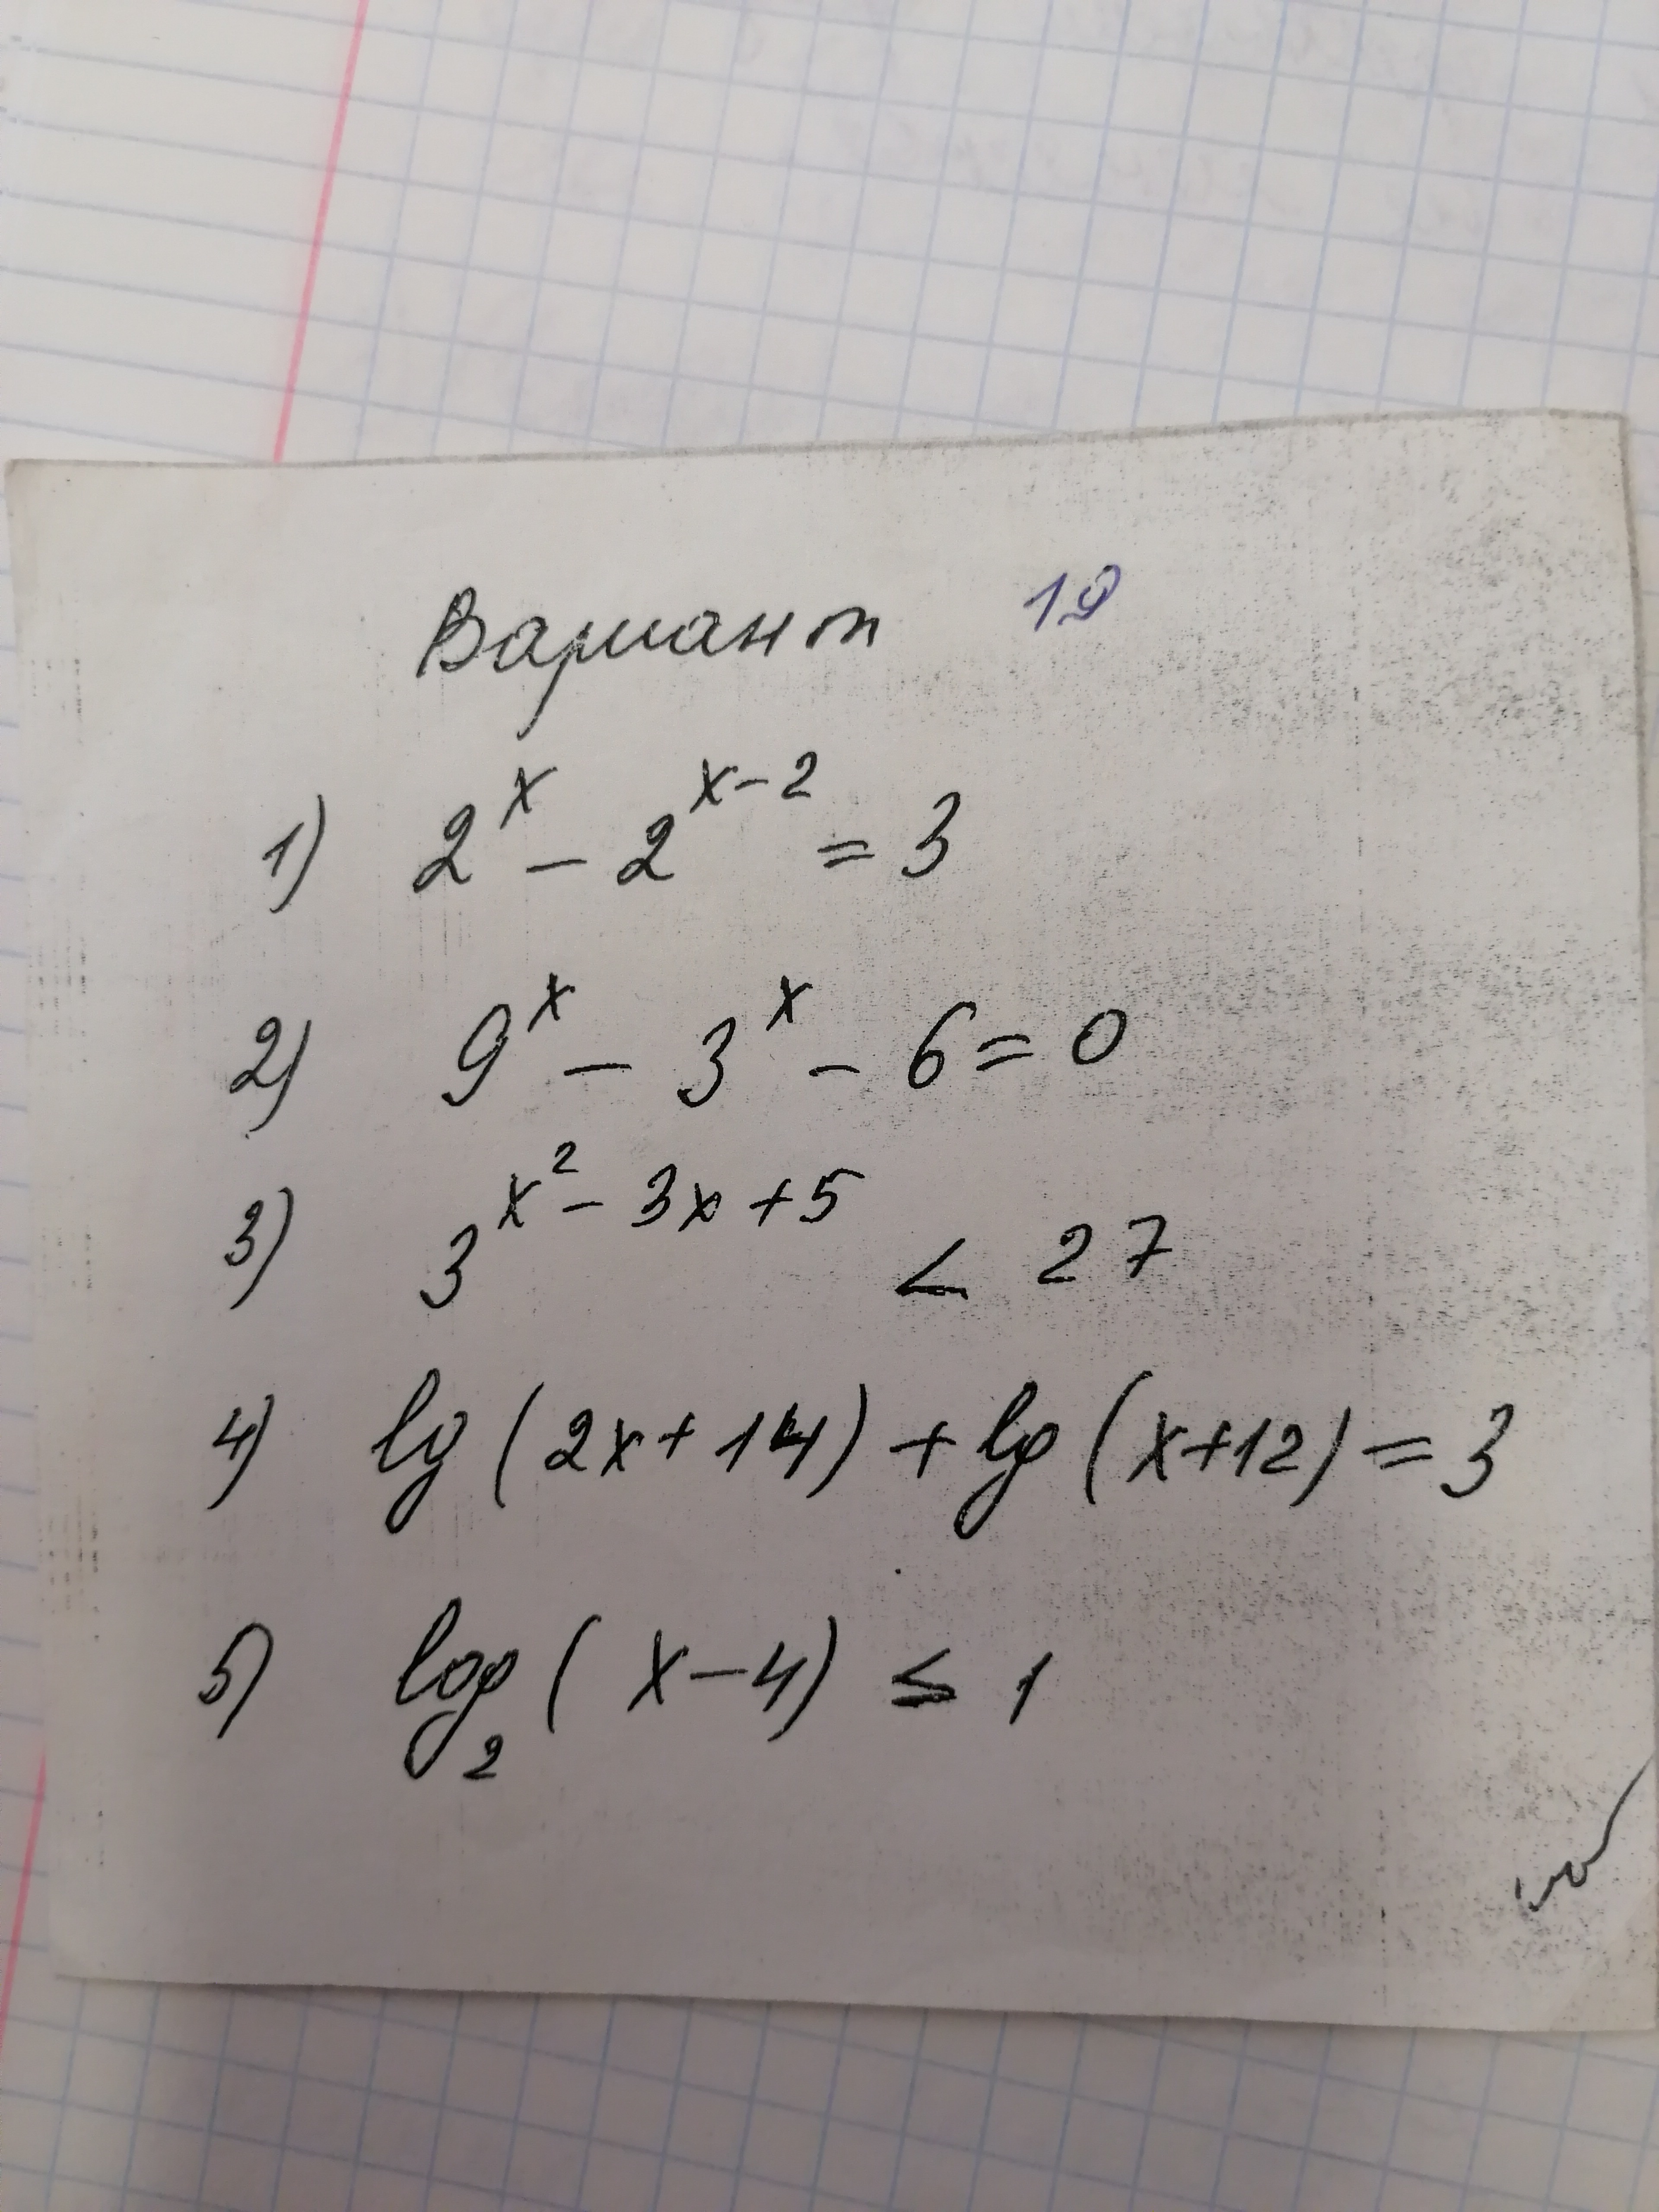 Вариант 19
1) 2^x - 2^{x-2} = 3
2) 9^x - 3^x - 6 = 0
3) 3^{x^2 - 3x + 5} < 27
4) lg (2x + 14) + lg (x + 12) = 3
5) log_2 (x - 4) ≤ 1